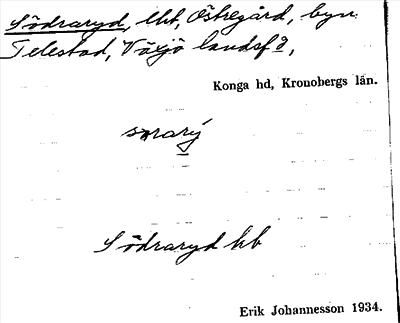 Södraryd, lht, Östregård, byn
Telestad, Växjö landsf,
Konga hd, Kronobergs län.
Södraryd kb
Erik Johannesson 1934.